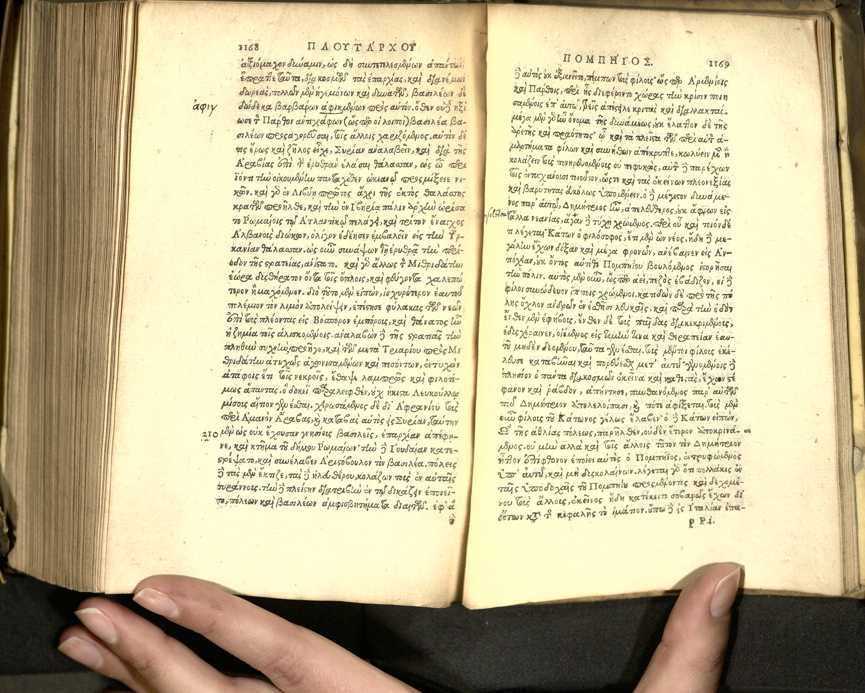 2168 ΠΛΟΥΤΑΡΧΟΥ
ἀξιόμαχον δύναμιν, ὡς δὴ συντετελεσμένων ἁπάντων
ἔπραττε ταῦτα, διακοσμῶν τὰς ἐπαρχίας, καὶ διανέμων
δωρεάς, πολλῶν μὲν ἡγεμόνων καὶ δυναστῶν, βασιλέων δὲ
ἀφιγ
δώδεκα βαρβάρων ἀφικμένων πρὸς αὐτόν. ὅθεν οὐδ' ἠξί
ωσε τὸν Πάρθον ἀντιγράφων (ὥσπερ οἱ λοιποὶ) βασιλέα βα-
σιλέων προσαγορεῦσαι, τοῖς ἄλλοις χαριζόμενος. αὐτὸν δέ
τις ἔρως καὶ ζῆλος εἶχε, Συρίαν ἀναλαβεῖν, καὶ διὰ τῆς
Ἀραβίας ἐπὶ τὴν ἐρυθρὰν ἐλάσαι θάλασσαν, ὡς ᾧ περι
ϊόντι τὴν οἰκουμένην πανταχόθεν ὠκεανῷ προσμίξειε νι-
κῶν. καὶ γὰρ ἐν Λιβύῃ πρῶτος ἄχρι τῆς ἐκτὸς θαλάσσης
κρατῶν προῆλθε, καὶ τὴν ἐν Ἰβηρίᾳ πάλιν ἀρχὴν ὡρίσα
το Ῥωμαίοις τῷ Ἀτλαντικῷ πελάγει, καὶ τρίτον ἔναγχος
Ἀλβανοὺς διώκων, ὀλίγον ἐδέησεν ἐμβαλεῖν εἰς τὴν Ὑρ-
κανίαν θάλασσαν. ὡς οὖν συνάψων τῇ ἐρυθρᾷ τὴν περί-
οδον τῆς στρατείας, ἀνίστατο. καὶ γὰρ ἄλλως τὸν Μιθριδάτην
ἑώρα δυσθήρατον ὄντα τοῖς ὅπλοις, καὶ φεύγοντα χαλεπώ
τερον ἢ μαχόμενον. διὸ τούτῳ μὲν εἰπών, ἰσχυρότερον ἑαυτοῦ
πολέμιον τὸν λιμὸν ἀπολείψειν, ἐπέστησε φύλακας τῶν νεῶν
ἐπὶ τοὺς πλέοντας εἰς Βόσπορον ἐμπόρους, καὶ θάνατος ἦν
ἡ ζημία τοῖς ἁλισκομένοις. ἀναλαβὼν δὲ τῆς στρατιᾶς τὸ
πλῆθος συχνὸν, προῆγε, καὶ τῶν μετὰ Τριαρίου πρὸς Μι
θριδάτην ἀτυχῶς ἀγωνισαμένων καὶ πεσόντων, ἐντυχὼν
ἀτάφοις ἔτι τοῖς νεκροῖς, ἔθαψε λαμπρῶς καὶ φιλοτί-
μως ἅπαντας. ὃ δοκεῖ παραλειφθὲν, οὐχ ἥκιστα Λευκούλλῳ
μίσους αἴτιον γενέσθαι. χειρωσάμενος δὲ δι' Ἀφρανίου τοὺς
περὶ Ἀμανὸν Ἄραβας, καὶ καταβὰς αὐτὸς εἰς Συρίαν, ταύτην
210 μὲν ὡς οὐκ ἔχουσαν γνησίους βασιλεῖς, ἐπαρχίαν ἀπέφη-
νε, καὶ κτῆμα τοῦ δήμου Ῥωμαίων· τὴν δὲ Ἰουδαίαν κατε-
στρέψατο, καὶ συνέλαβεν Ἀριστόβουλον τὸν βασιλέα. πόλεις
δὲ τὰς μὲν ἔκτιζε, τὰς δὲ ἠλευθέρου κολάζων τοὺς ἐν αὐταῖς
τυράννους. τὴν δὲ πλείστην διατριβὴν ἐν τῷ δικάζειν ἐποιεῖ-
το, πόλεων καὶ βασιλέων ἀμφισβητήματα διαιτῶν. ἐφ' ἃ
δὲ
ΠΟΜΠΗΙΟΣ. 1169
δὲ αὐτὸς οὐκ ἐξικνεῖτο, πέμπων τοὺς φίλους· ὥσπερ Ἀρμενίοις
καὶ Πάρθοις, περὶ ἧς διεφέροντο χώρας τὴν κρίσιν ποιη
σαμένοις ἐπ' αὐτῷ, τρεῖς ἀπέστειλε κριτὰς καὶ διαλλακτάς.
μέγα μὲν γὰρ ἦν ὄνομα τῆς δυνάμεως, οὐκ ἔλαττον δὲ τῆς
ἀρετῆς καὶ πραότητος· ᾧ καὶ τὰ πλεῖστα τῶν περὶ αὐτὸν ἁ-
μαρτήματα φίλων καὶ συνήθων ἀπέκρυπτε, κωλύειν μὲν ἢ
κολάζειν τοὺς πονηρευομένους οὐ πεφυκὼς, αὑτὸν δὲ παρέχων
τοῖς ἐντυγχάνουσι τοιοῦτον, ὥστε καὶ τὰς ἐκείνων πλεονεξίας
καὶ βαρύτητας εὐκόλως ὑπομένειν. ὁ δὲ μέγιστον δυνάμε-
νος παρ' αὐτῷ, Δημήτριος ἦν, ἀπελεύθερος, οὐκ ἄφρων εἰς
τἄλλα νεανίας, ἄγαν δὲ τῇ τύχῃ χρώμενος. περὶ οὗ καὶ τοιόνδε
τι λέγεται. Κάτων ὁ φιλόσοφος, ἔτι μὲν ὢν νέος, ἤδη δὲ με-
γάλην ἔχων δόξαν καὶ μέγα φρονῶν, ἀνέβαινεν εἰς Ἀν-
τιόχειαν, οὐκ ὄντος αὐτόθι Πομπηίου βουλόμενος ἱστορῆσαι
τὴν πόλιν. αὐτὸς μὲν οὖν, ὥσπερ ἀεὶ, πεζὸς ἐβάδιζεν, οἱ δὲ
φίλοι συνώδευον ἵπποις χρώμενοι. κατιδὼν δὲ πρὸ τῆς πύ
λης ὄχλον ἀνδρῶν ἐν ἐσθῆσι λευκαῖς, καὶ παρὰ τὴν ὁδὸν
ἔνθεν μὲν ἐφήβους, ἔνθεν δὲ τοὺς παῖδας διακεκριμένους,
ἐδυσχέραινεν, οἰόμενος εἰς τιμήν τινα καὶ θεραπείαν ἑαυ-
τοῦ μηδὲν δεομένου, ταῦτα γενέσθαι. τοὺς μέντοι φίλους ἐκέ-
λευσε καταβῆναι καὶ πορεύεσθαι μετ' αὐτοῦ. γενομένοις δὲ
πλησίον ὁ πάντα διακοσμῶν ἐκεῖνα καὶ καθιστὰς, ἔχων στέ
φανον καὶ ῥάβδον, ἀπήντησε, πυνθανόμενος παρ' αὐτῶν
ποῦ Δημήτριον ἀπολελοίπασι, καὶ πότε ἀφίξεται. τοὺς μὲν
οὖν φίλους τοῦ Κάτωνος γέλως ἔλαβεν· ὁ δὲ Κάτων εἰπών,
ὦ τῆς ἀθλίας πόλεως, παρῆλθεν, οὐδὲν ἕτερον ἀποκρινά-
μενος. οὐ μὴν ἀλλὰ καὶ τοῖς ἄλλοις τοῦτον τὸν Δημήτριον
ἧττον ἐπίφθονον ἐποίει αὐτὸς ὁ Πομπήϊος, ἐντρυφώμενος
ὑπ' αὐτοῦ, καὶ μὴ δυσκολαίνων. λέγεται γὰρ ὅτι πολλάκις ἐν
ταῖς ὑποδοχαῖς τοῦ Πομπηίου προσμένοντος καὶ δεχομέ-
νου τοὺς ἄλλους, ἐκεῖνος ἤδη κατέκειτο σοβαρὸς ἔχων δι'
ὤτων κατὰ τῆς κεφαλῆς τὸ ἱμάτιον. οὔπω δὲ εἰς Ἰταλίαν ἐπα-
PP.i.